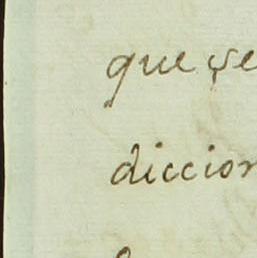 que se
diccion